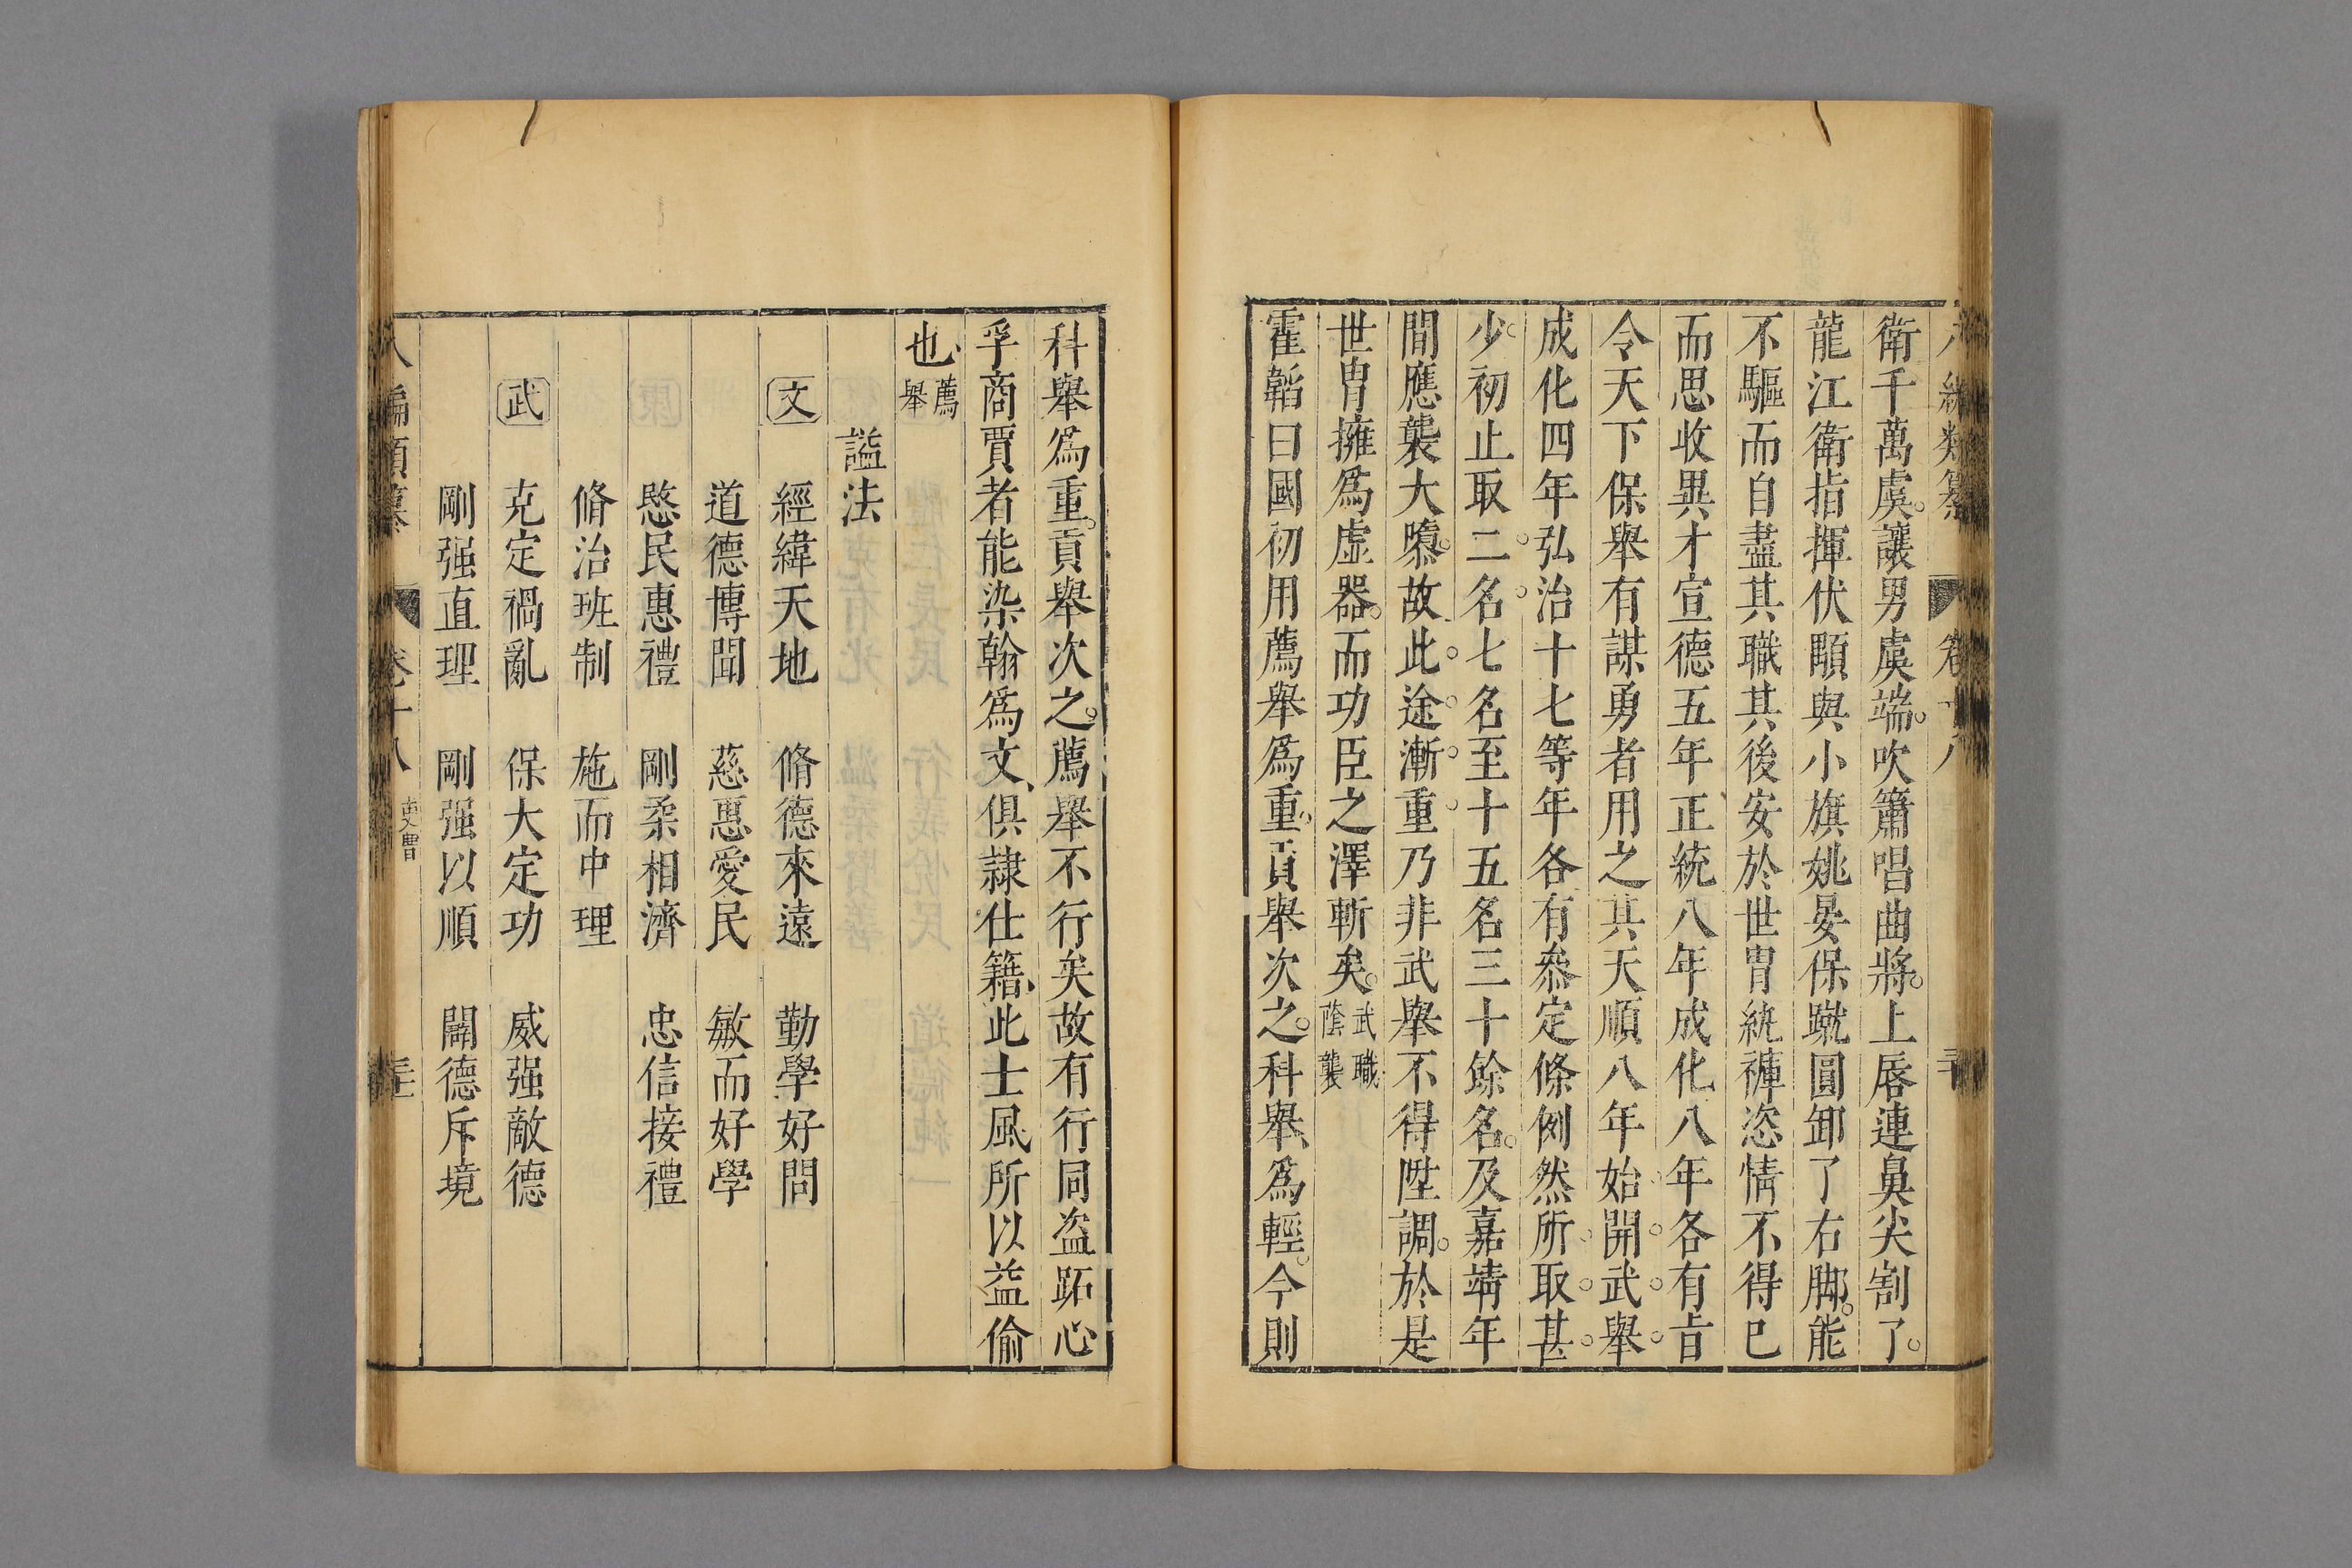 衛千萬虞讓男虞端吹簫唱曲將上唇連鼻尖割了
龍江衛指揮伏顒與小旗姚晏保蹴圓卸了右脚能
不驅而自盡其職其後安於世胄統褲恣情不得已
而思收異才宣德五年正統八年成化八年各有旨
令天下保舉有謀勇者用之其天順八年始開武舉
成化四年弘治十七等年各有叅定條例然所取甚
少初止取二名七名至十五名三十餘名及嘉靖年
間應襲大隳故此途漸重乃非武舉不得陞調於是
世胄擁爲虛器而功臣之澤斬矣武職蔭襲
霍韜曰國初用薦舉爲重貢舉次之科舉爲輕今則
科舉爲重貢舉次之薦舉不行矣故有行同盗跖心
孚商賈者能染翰爲文俱隷仕籍此士風所以益偷
也薦舉
謚法
文 經緯天地 脩德來遠 勤學好問
道德博聞 慈惠愛民 敏而好學
愍民惠禮 剛柔相濟 忠信接禮
脩治班制 施而中理
武 克定禍亂 保大定功 威强敵德
剛强直理 剛强以順 闢德斥境
八編類纂 卷十八